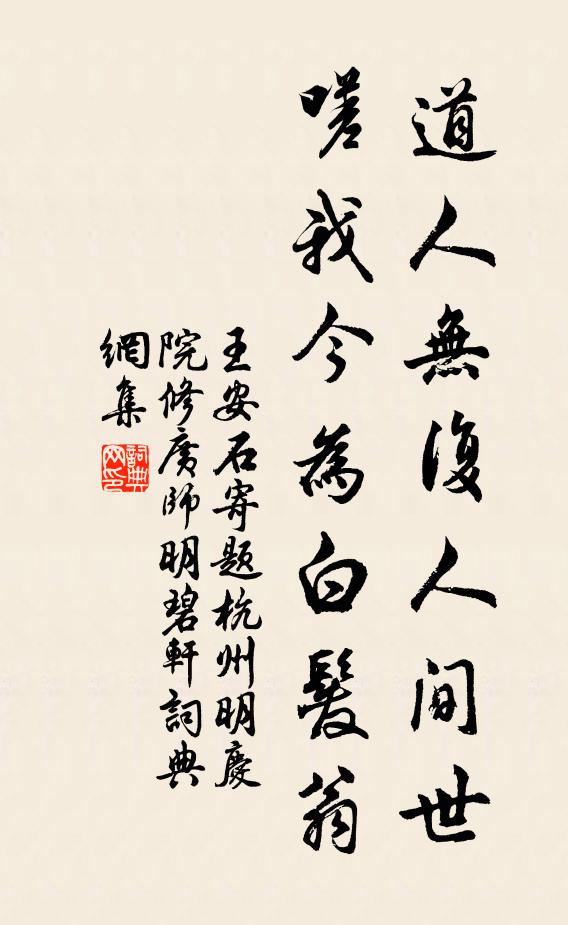 道人無復人間世
嗟我今為白髮翁
王安石寄題杭州明慶
院修廣師明碧軒詞典
網集
詞典
网印